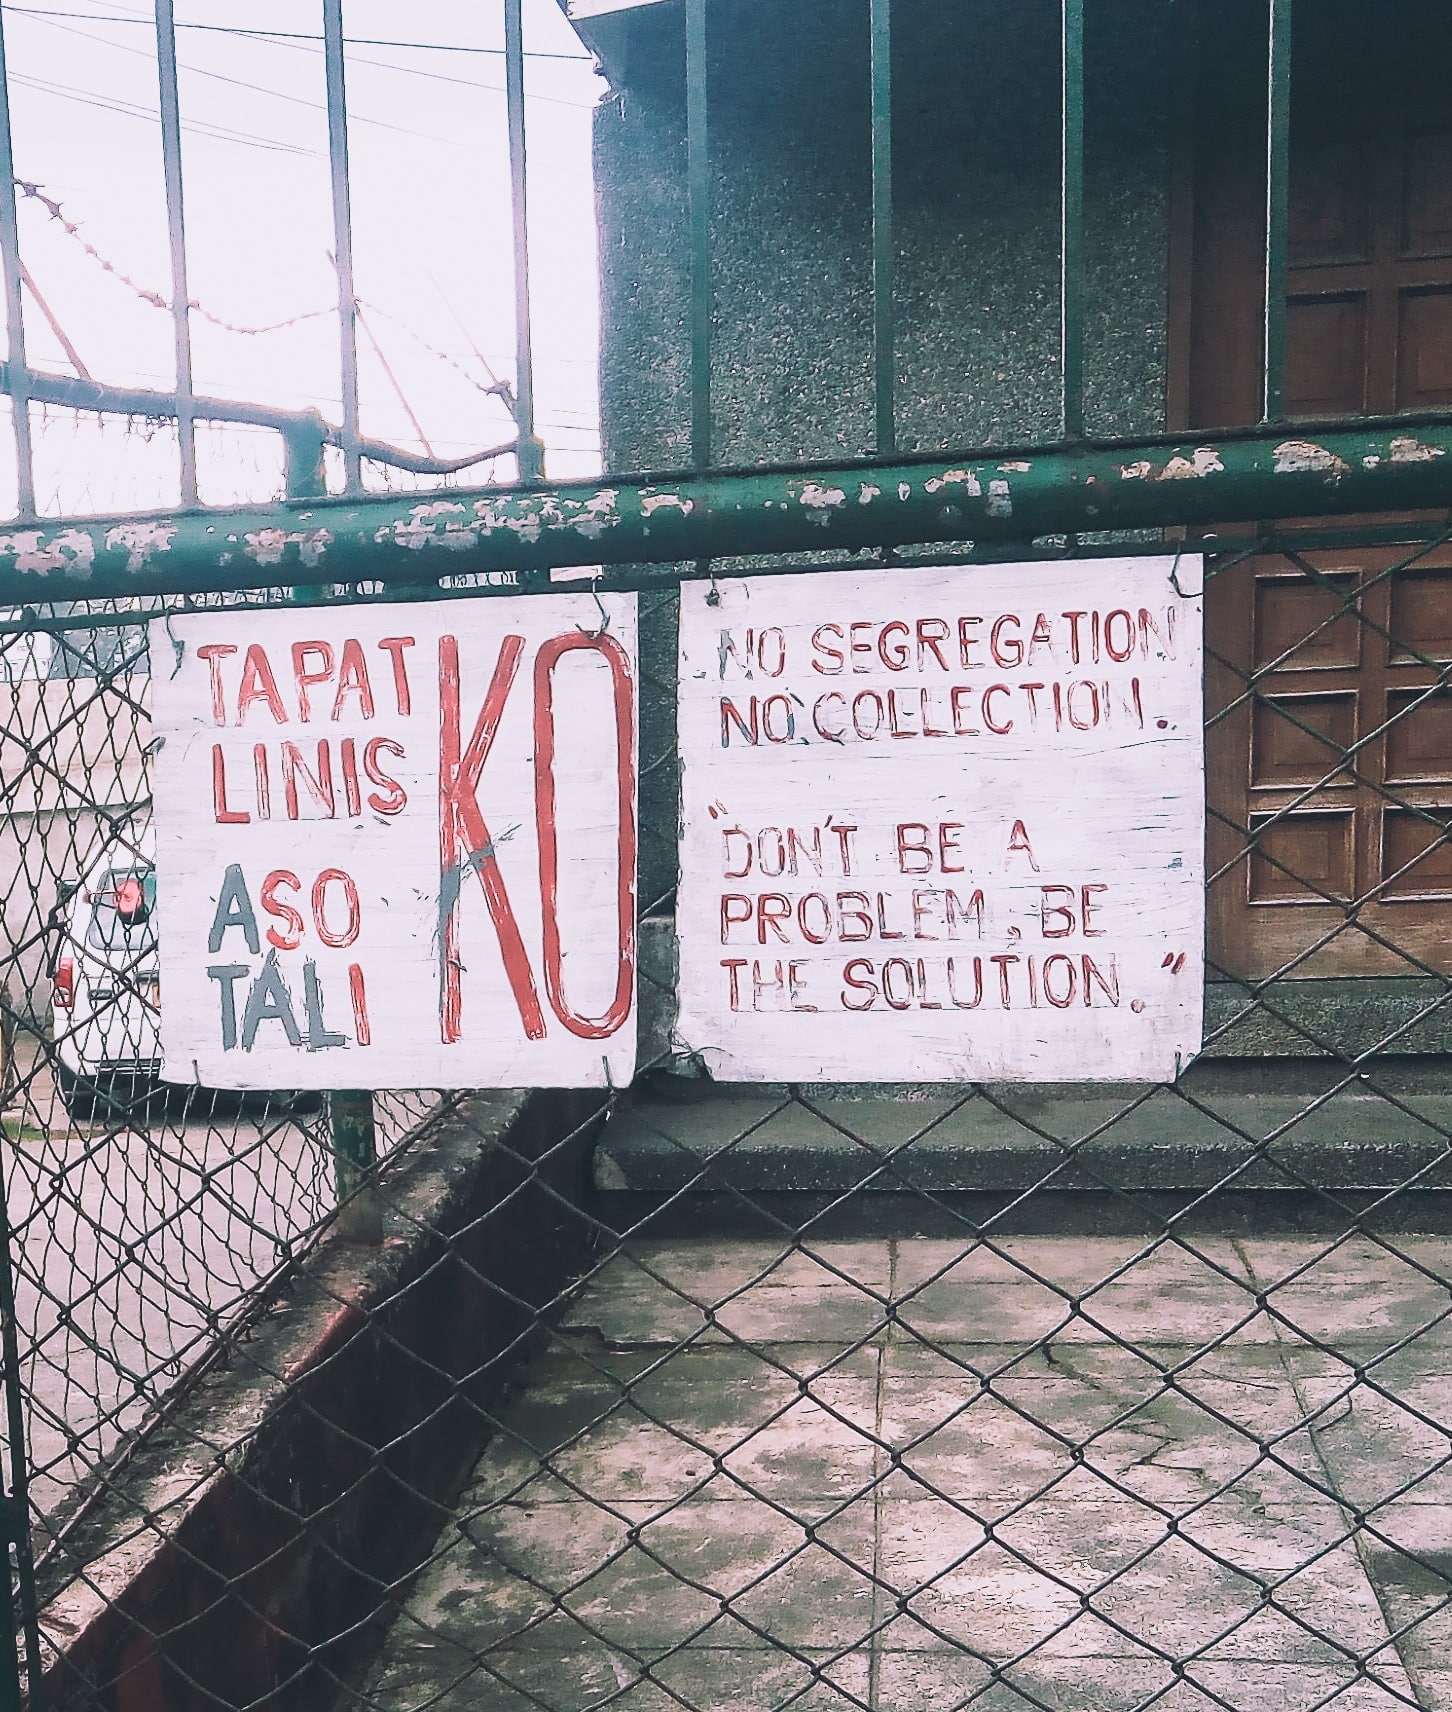 TAPAT KO
LINIS
ASO
TALI
NO SEGREGATION
NO COLLECTION.
"DON'T BE A
PROBLEM, BE
THE SOLUTION."